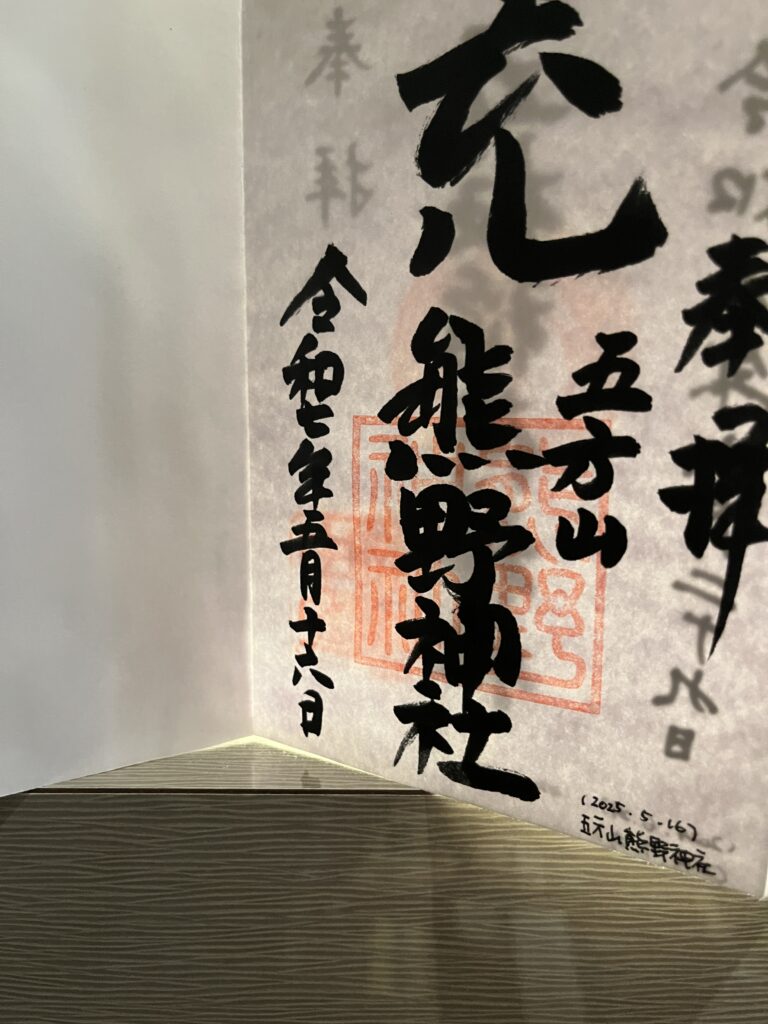 奉拝
五方山
充
熊野神社
令和七年五月十六日
熊野
神社
(2025.5.16)
五方山熊野神社